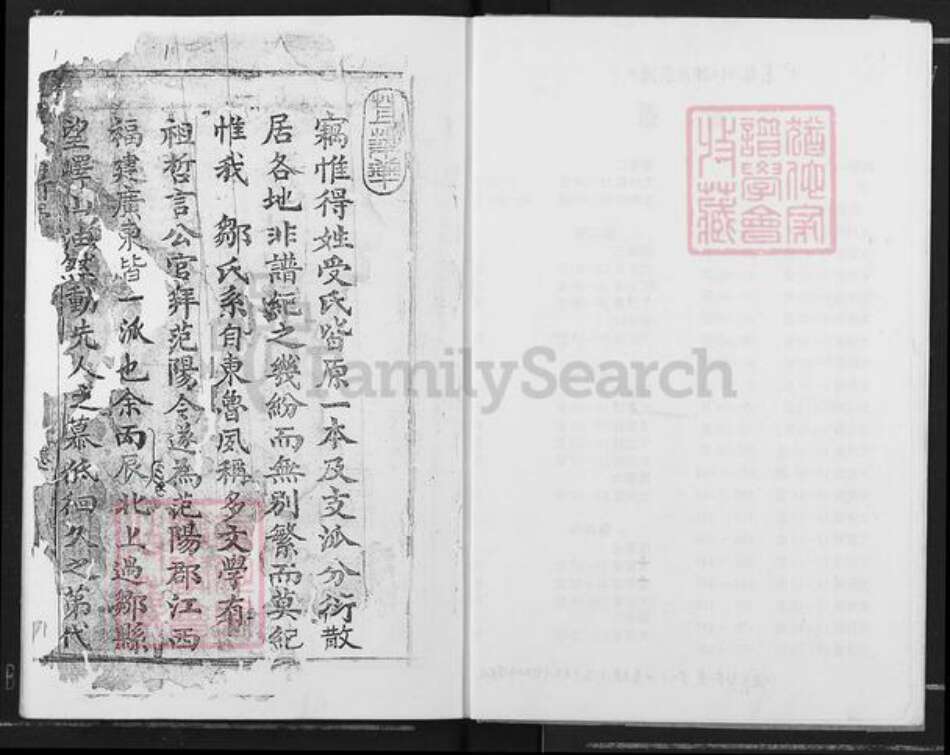 猶他家
譜學會
收藏
竊惟得姓受氏皆原一本及支派分衍散
居各地非譜紀之幾紛而無別繁而莫紀
惟我 鄒氏系自東魯夙稱多文學有
祖哲言公官拜范陽令遂為范陽郡江西
福建廣東皆一派也余丙辰北上過鄒縣
望嶧山油然動先人之慕低徊久之第代
FamilySearch